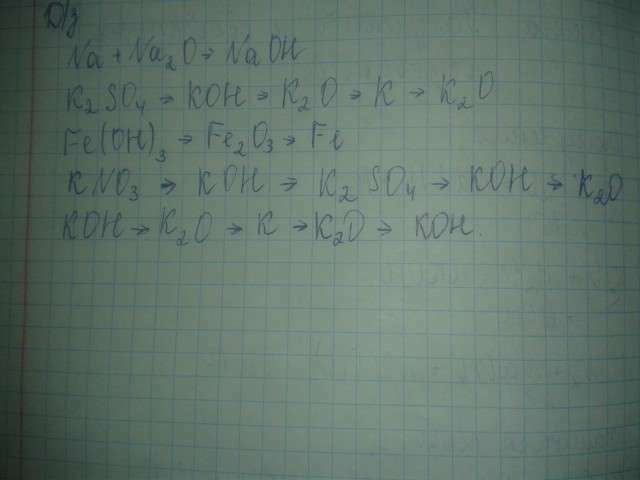 D/з
Na + Na₂O → NaOH
K₂SO₄ → KOH → K₂O → K → K₂O
Fe(OH)₃ → Fe₂O₃ → Fe
KNO₃ → KOH → K₂SO₄ → KOH → K₂O
KOH → K₂O → K → K₂O → KOH.